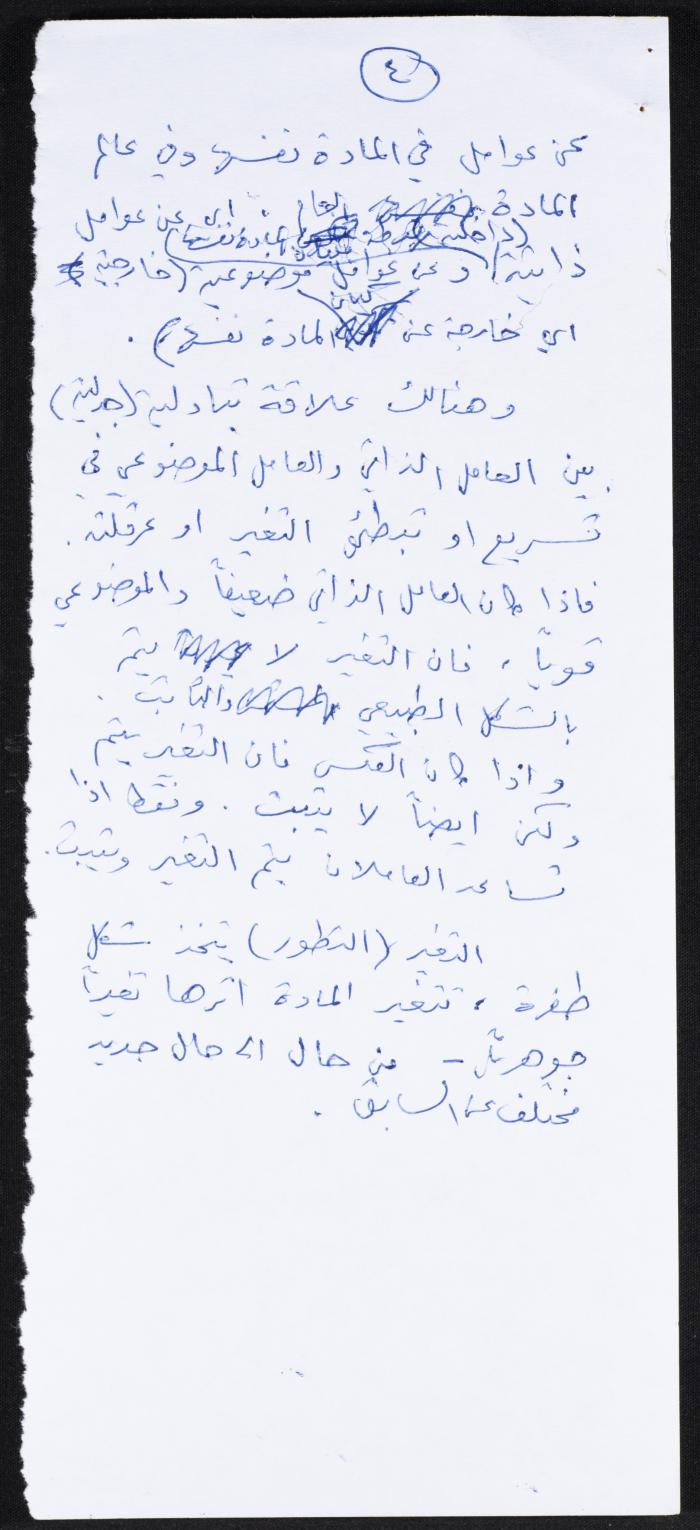 ٤
عن عوامل في المادة نفسها وفي عالم
المادة العام، اي عن عوامل
(داخلية المادة نفسها)
ذاتية) وعن عوامل موضوعية (خارجية
كيان
اي خارجة عن المادة نفسها).
وهنالك علاقة تبادلية (جدلية)
بين العامل الذاتي والعامل الموضوعي في
تسريع او تبطئ التغير او عرقلته.
فاذا كان العامل الذاتي ضعيفاً والموضوعي
قوياً، فان التغير لا يتم
بالشكل الطبيعي والثابت.
واذا كان العكس فان التغير يتم
ولكن ايضاً لا يثبت. وفقط اذا
تساعد العاملان يتم التغير ويثبت.
التغير (التطور) يتخذ شكل
طفرة، تتغير المادة اثرها تغيراً
جوهرياً - من حال الى حال جديد
مختلف عن السابق.